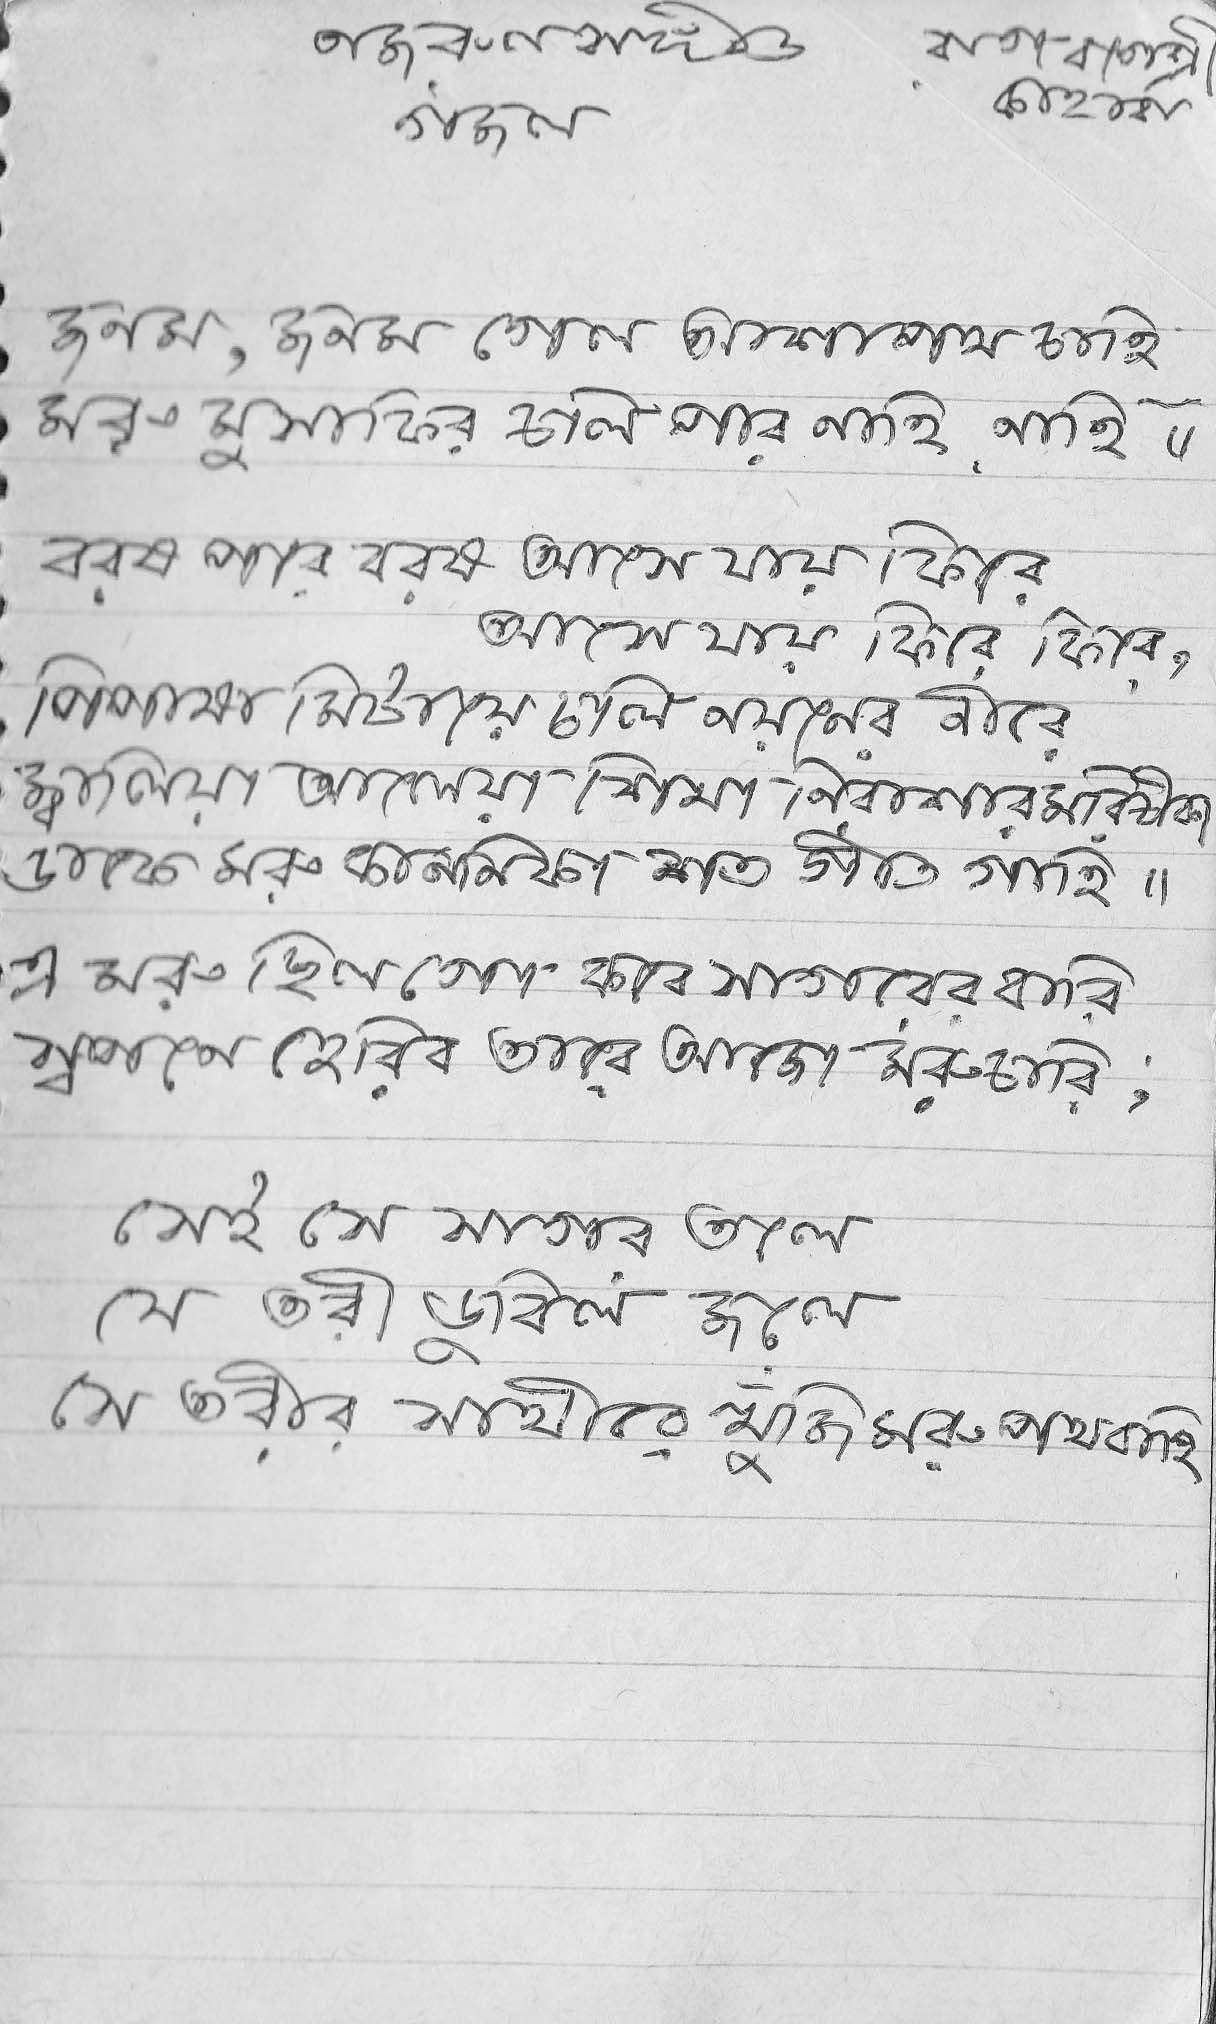 নজরুল সঙ্গীত রাগ-বাগেশ্রী
গজল কাহারবা
জনম, জনম গেল আশাপথ চাহি
মরু মুসাফির চলি পার নাহি নাহি॥
বরষ পরে বরষ আসে যায় ফিরে
আসে যায় ফিরে ফিরে,
পিপাষা মিটায়ে চলি নয়নের নীরে
জ্বালিয়া আলেয়া শিখা নিরাশার মরিচীকা
ডাকে মরু কাননিকা শত গীত গাহি॥
এ মরু ছিল গো কবে সাগরের বারি
স্বপনে হেরিব তারে আজো মরুচারি;
সেই সে সাগর তলে
যে তরী ডুবিল জলে
সে তরীর সাথীরে খুঁজি মরু পথবাহি